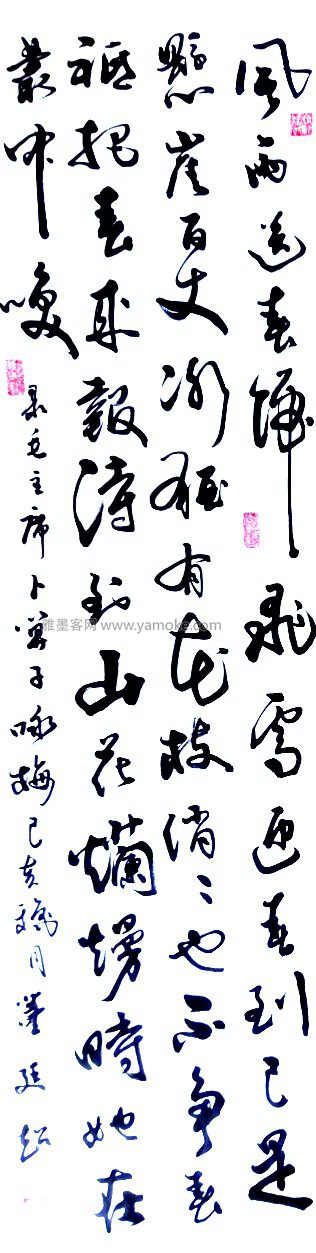 風雨送春歸飛雪迎春到已是
懸崖百丈冰猶有花枝俏〻也不爭春
祗把春来報待到山花爛熳時她在
叢中咲
录毛主席卜算子咏梅己亥臘月
雅墨客网 www.yamoke.com